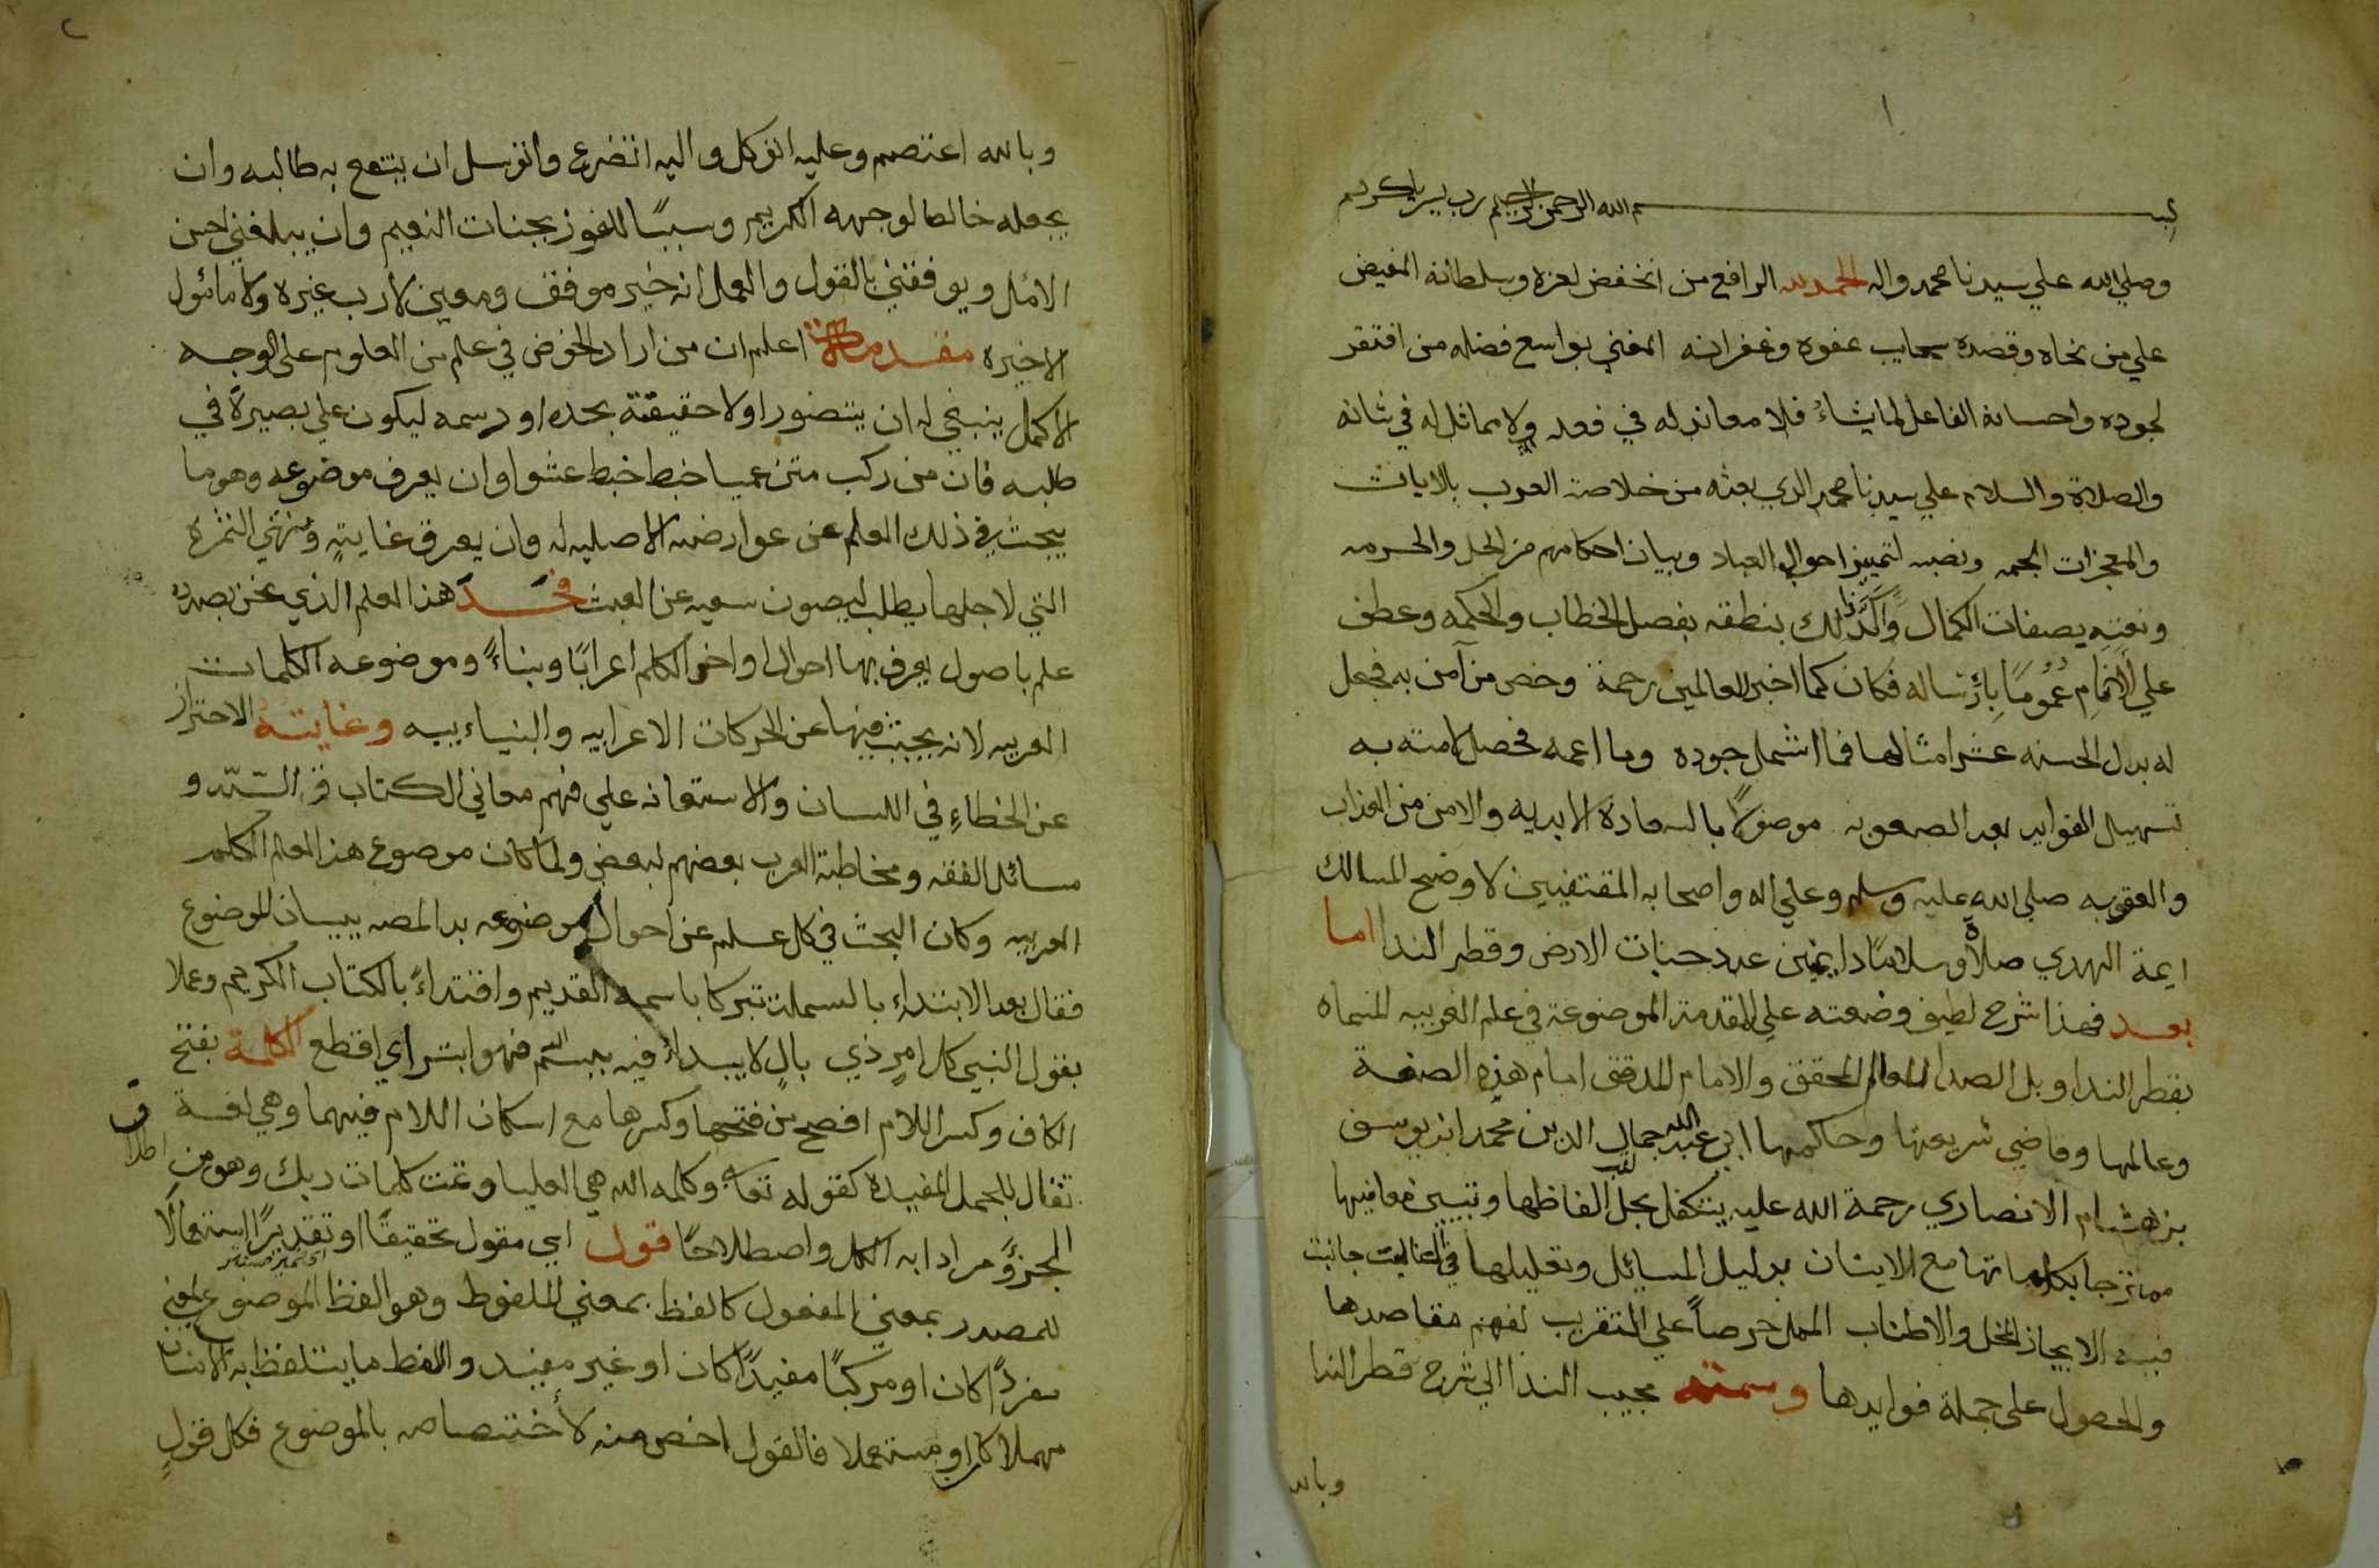 ١
بسم الله الرحمن الرحيم رب يسر يا كريم
وصلي الله علي سيدنا محمد واله الحمد لله الرافع من انخفض لعزه وسلطانه المفيض
علي من نحاه وقصده سحايب عفوه وغفرانه المغني بواسع فضله من افتقر
لجوده واحسانه الفاعل لما يشاء فلا معاند له في فعله ولا مماثل له في شانه
والصلاة والسلام علي سيدنا محمد الذي بعثه من خلاصة العرب بالايات
والمعجزات الجمه ونصبه لتمييز احوال العباد وبيان احكامهم من الحل والحرمه
ونعته بصفات الكمال واكد ذلك بنطقه بفصل الخطاب والحكمه وعطف
علي الانام عموما بارساله فكان كما اخبر للعالمين رحمة وخص من آمن به فجعل
له بدل الحسنه عشر امثالها فما اشمل جوده وما اعمه فحصل لامته به
تسهيل الفوايد بعد الصعوبه موصولا بالسعادة الابديه والامن من العذاب
والعقوبه صلي الله عليه وسلم وعلي اله واصحابه المقتفيين لاوضح المسالك
ايمة الهدي صلاة وسلاما دايمين عدد حبات الارض وقطر الندا اما
بعد فهذا شرح لطيف وضعته علي المقدمة الموضوعة في علم العربيه المسماه
بقطر الندا وبل الصدا للعالم المحقق والامام المدقق امام هذه الصنعة
وعالمها وقاضي شريعتها وحاكمها ابي عبد الله جمال الدين محمد ابن يوسف
بن هشام الانصاري رحمة الله عليه يتكفل بحل الفاظها وتبيين معانيها
ممتزجا بكلماتها مع الايتان بدليل المسائل وتعليلها في الغالب جانبت
فيه الايجاز المخل والاطناب الممل حرصاً علي التقريب لفهم مقاصدها
والحصول علي جملة فوايدها وسمته مجيب الندا الي شرح قطر الندا
وبالله
٢
وبالله اعتصم وعليه اتوكل واليه اتضرع واتوسل ان ينتفع به طالبه وان
يجعله خالصا لوجهه الكريم وسببًا للفوز بجنات النعيم وان يبلغني احسن
الامل ويوفقني بالقول والعمل انه خير موفق ومعين لا رب غيره ولا مائول
الاخيره مقدمة اعلم ان من اراد الخوض في علم من العلوم علي الوجه
الاكمل ينبغي له ان يتصور اولا حقيقته بحده او رسمه ليكون علي بصيرة في
طلبه فان من ركب متن عميا خبط خبط عشوا وان يعرف موضوعه وهو ما
يبحث في ذلك العلم عن عوارضه الاصليه له وان يعرف غايته ومنتهي الثمرة
التي لاجلها يطلب ليصون سعيه عن العبث فحد هذا العلم الذي نحن بصدده
علم باصول يعرف بها احوال اواخر الكلم اعرابًا وبناءً وموضوعه الكلمات
العربيه لانه يبحث فيها عن الحركات الاعرابيه والبنياء بيه وغايته الاحتراز
عن الخطاءِ في اللسان والاستعانه علي فهم معاني الكتاب والسنه و
مسائل الفقه ومخاطبة العرب بعضهم لبعض ولما كان موضوع هذا العلم الكلم
العربيه وكان البحث في كل علم عن احوال موضوعه بدا المصه ببيان الموضوع
فقال بعد الابتداءِ بالبسملة تبركا باسمه القديم واقتداءً بالكتاب الكريم وعملا
بقول النبي كل امرٍ ذي بالٍ لا يبداء فيه ببسم الله فهو ابتر اي اقطع الكلمة بفتح
الكاف وكسر اللام افصح من فتحها وكسرها مع اسكان اللام فيهما وهي لغة
تقال للجمل المفيدة كقوله تعالي وكلمه الله هي العليا وتمت كلمات ربك وهو من اطلاق
الجزؤ مرادا به الكل واصطلاحًا قول اي مقول تحقيقًا او تقديرًا استعمالا
للمصدر بمعني المفعول كالفظ بمعني الملفوظ وهو الفظ الموضوع لمعني
مفرداً كان او مركبًا مفيدًا كان او غير مفيد واللفظ ما يتلفظ به الانسان
مهملا كان او مستعملا فالقول اخص منه لأختصاصه بالموضوع فكل قولٍ